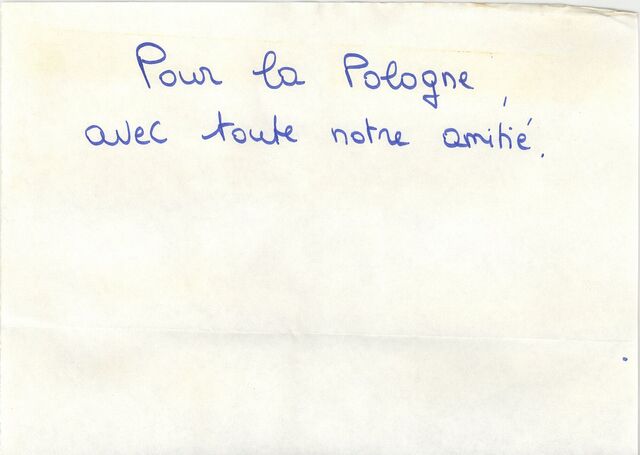 Pour la Pologne,
avec toute notre amitié.